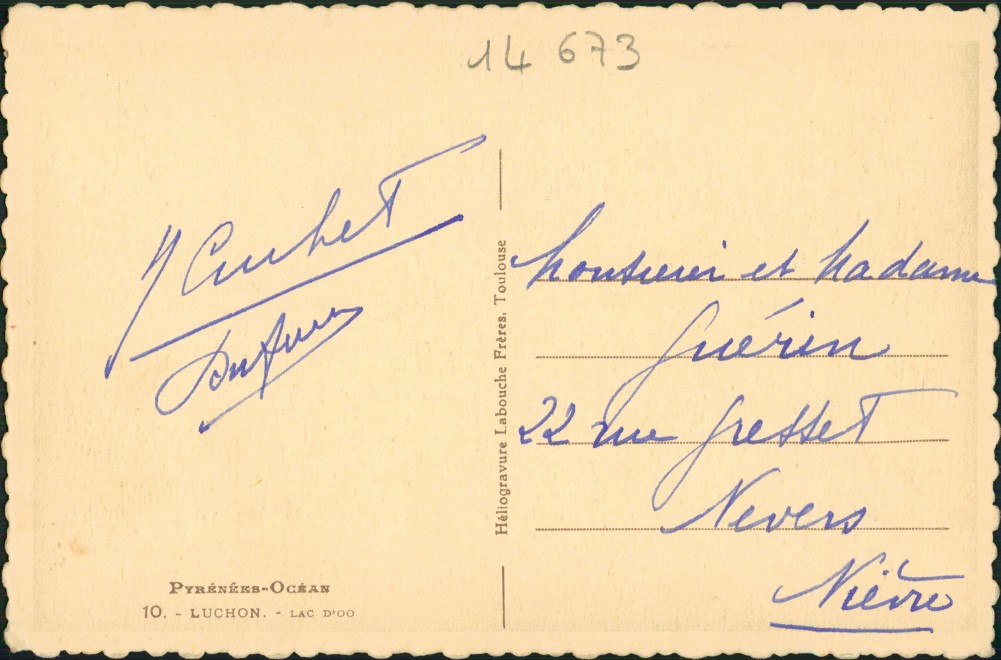 14 673
Cuchet
Héliogravure Labouche Frères, Toulouse
Monsieur et Madame
Guérin
22 rue Gresset
Nevers
Nièvre
PYRÉNÉES-OCÉAN
10. - LUCHON. - LAC D'OO